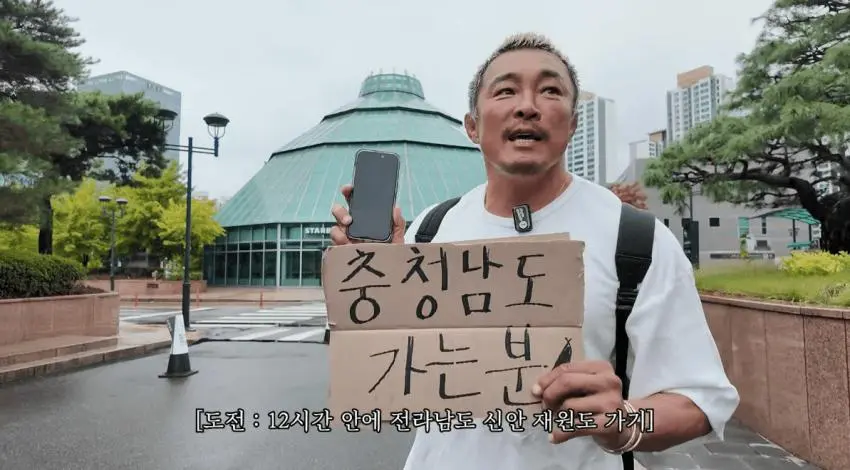 STARB
충청남도
가는 분
[도전 : 12시간 안에 전라남도 신안 재원도 가기]